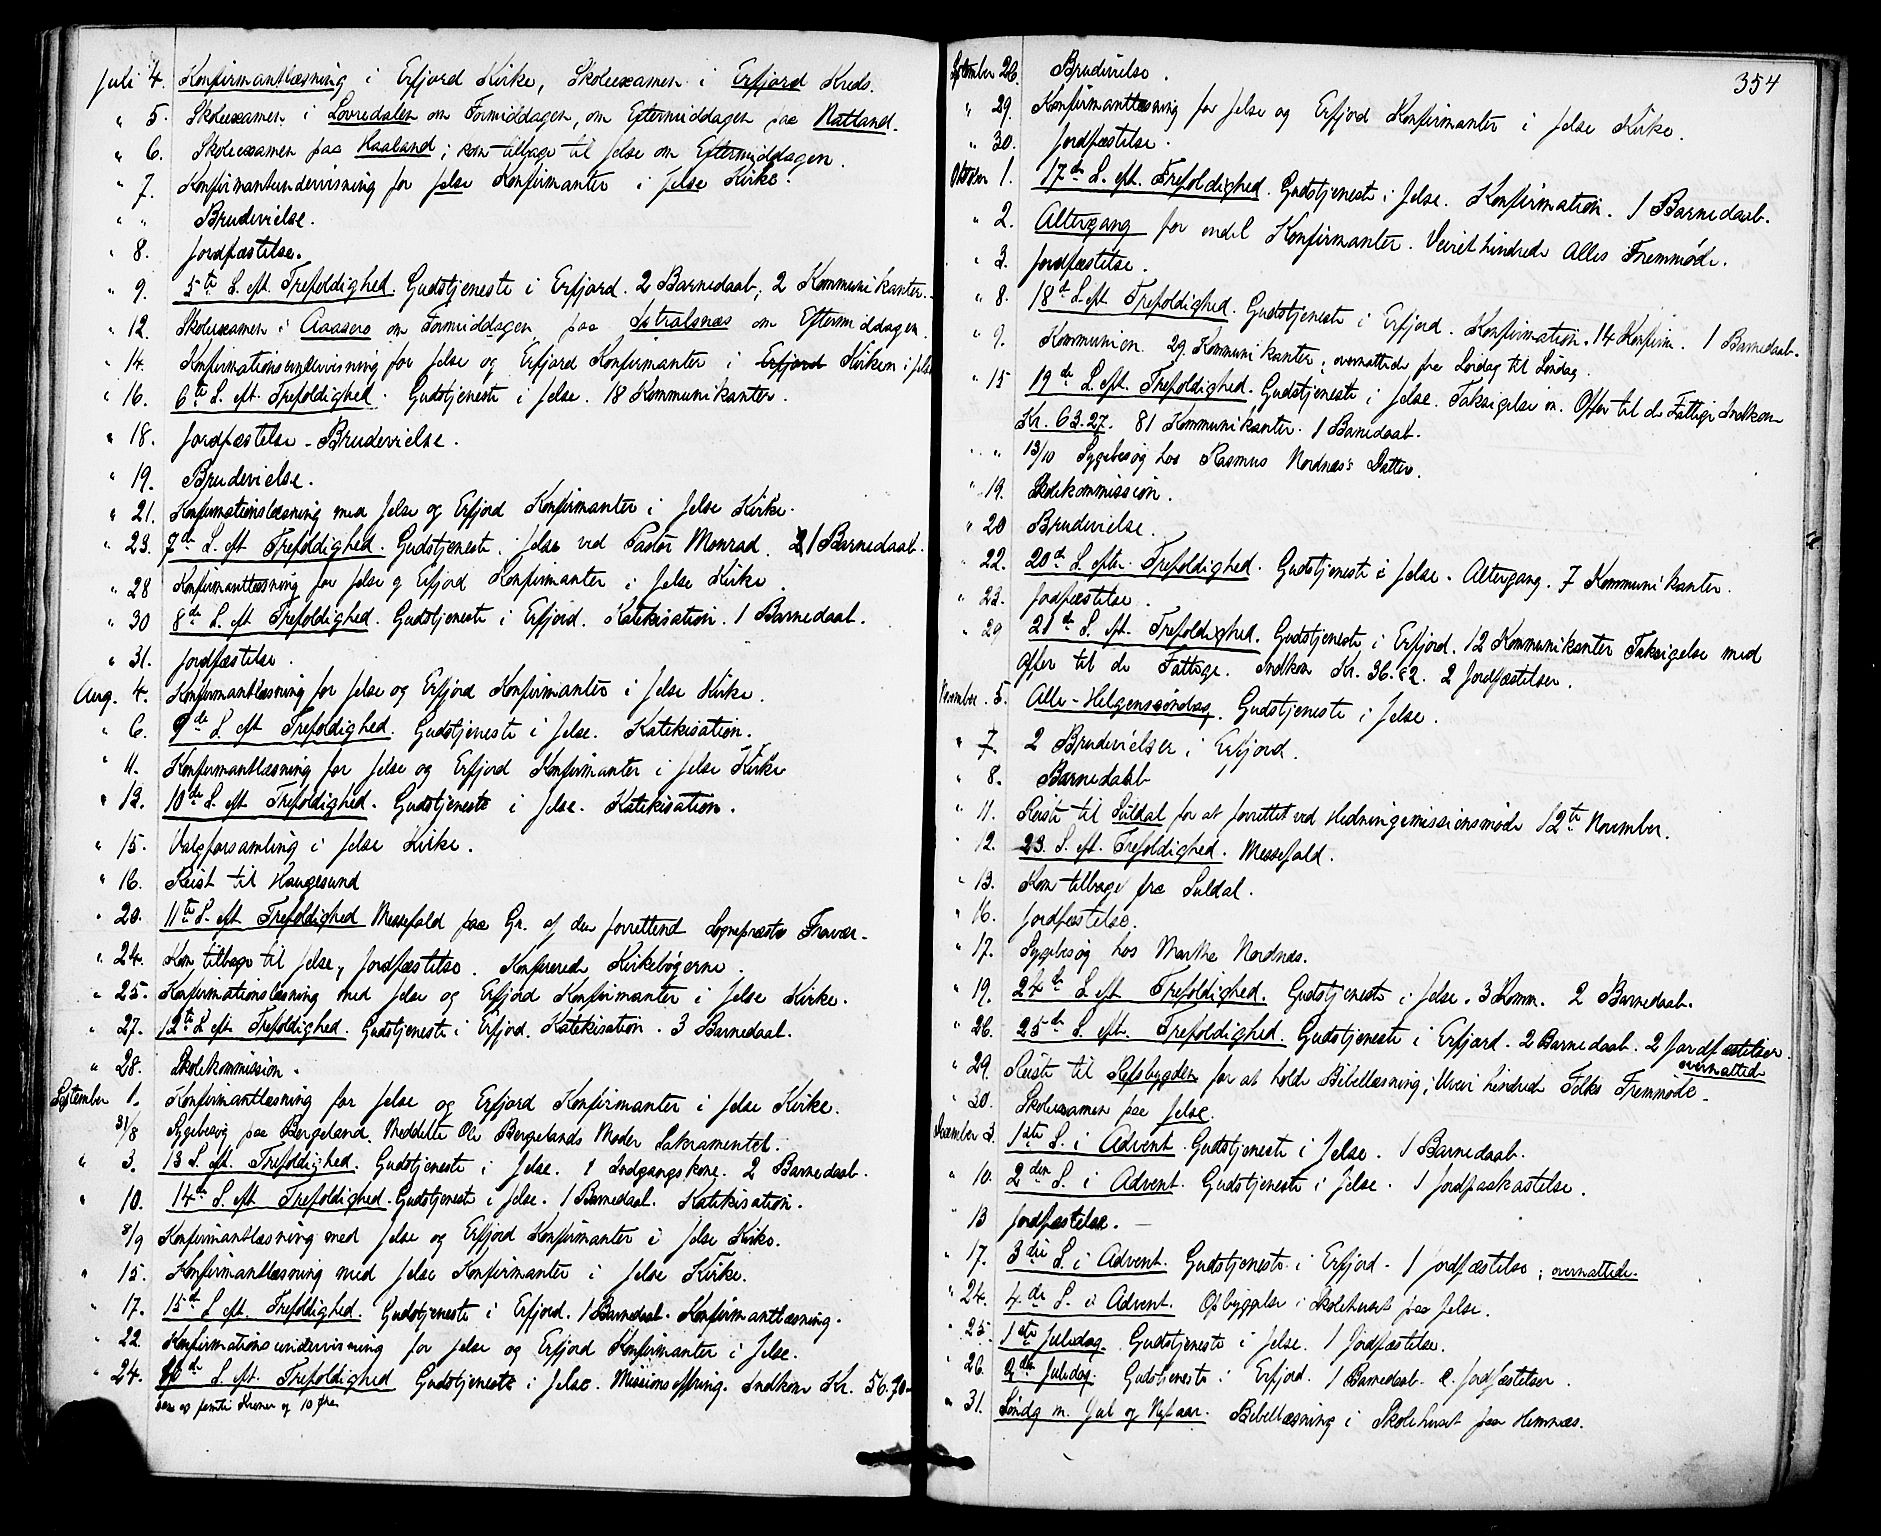 Juli 4. Konfirmantlæsning i Erfjord Kirke, Skoleexamen i Erfjord Kreds.
" 5. Skoleexamen i Lovredalen om Formiddagen, om Eftermiddagen paa Natland.
" 6. Skoleexamen paa Haaland; kom tilbage til Jelse om Eftermiddagen.
" 7. Konfirmantundervisning for Jelse Konfirmanter i Jelse Kirke.
" " Brudevielse.
" 8. Jordfæstelse.
" 9. 5te S. eft. Trefoldighed. Gudstjeneste i Erfjord. 2 Barnedaab; 2 Kommunikanter.
" 12. Skoleexamen i Aaasero om Formiddagen paa om Eftermiddagen.
" 14. Konfirmationsundervisning for Jelse og Erfjord Konfirmanter i Erfjord Kirken i Jelse
" 16. 6te S. eft. Trefoldighed. Gudstjeneste i Jelse. 18 Kommunikanter.
" 18. Jordfæstelse - Brudevielse.
" 19. Brudevielse.
" 21. Konfirmationslæsning med Jelse og Erfjord Konfirmanter i Jelse Kirke.
" 23. 7de S. eft Trefoldighed. Gudstjeneste i Jelse ved Pastor Monrad. 1 Barnedaab.
" 28 Konfirmantlæsning for Jelse og Erfjord Konfirmanter i Jelse Kirke.
" 30 8de S. eft Trefoldighed. Gudstjeneste i Erfjord. Katekisation. 1 Barnedaab.
" 31. Jordfæstelse.
Aug. 4. Konfirmantlæsning for Jelse og Erfjord Konfirmanter i Jelse Kirke.
" 6. 9de S. eft Trefoldighed. Gudstjeneste i Jelse. Katekisation.
" 11. Konfirmantlæsning for Jelse og Erfjord Konfirmanter i Jelse Kirke
" 13. 10de S. eft Trefoldighed. Gudstjeneste i Jelse. Katekisation.
" 15. Valgforsamling i Jelse Kirke.
" 16. Reist til Haugesund
" 20. 11te S. eft Trefoldighed Messefald paa Gr. af den forrettend Sognepræsts Fravær.
" 24. Kom tilbage til Jelse, Jordfæstelse. Konfererede Kirkebøgerne.
" 25. Konfirmationslæsning med Jelse og Erfjord Konfirmanter i Jelse Kirke.
" 27. 12te S. eft. Trefoldighed. Gudstjeneste i Erfjord. Katekisation. 3 Barnedaab.
" 28. Skolekommission.
September 1. Konfirmantlæsning for Jelse og Erfjord Konfirmanter i Jelse Kirke.
31/8 Sygebesøg paa Bergeland. Meddelte Ole Bergelands Moder Sakramentet.
" 3. 13 S. eft. Trefoldighed. Gudstjeneste i Jelse. 1 Indgangskone. 2 Barnedaab.
" 10. 14de S. eft Trefoldighed. Gudstjeneste i Jelse. 1 Barnedaab. Katekisation.
8/9 Konfirmantlæsning med Jelse og Erfjord Konfirmanter i Jelse Kirke.
" 15. Konfirmantlæsning med Jelse Konfirmanter i Jelse Kirke.
" 17. 15de S eft. Trefoldighed. Gudstjeneste i Erfjord. 1 Barnedaab. Konfirmantlæsning.
" 22. Konfirmationsundervisning for Jelse og Erfjord Konfirmanter i Jelse.
" 24. 16de S. eft. Trefoldighed Gudstjeneste i Jelse. Missionsoffring. Indkom Kr. 56.90
Sex og femti Kroner og 10 Øre
354
September 26. Brudevielse.
" 29. Konfirmantlæsning for Jelse og Erfjord Konfirmanter i Jelse Kirke.
" 30. Jordfæstelse.
Oktober 1. 17de S. eft. Trefoldighed. Gudstjeneste i Jelse. Konfirmation. 1 Barnedaab.
" 2. Altergang for endel Konfirmanter. Veiret hindrede Alles Fremmøde.
" 3. Jordfæstelse.
" 8. 18de S. eft Trefoldighed. Gudstjeneste i Erfjord. Konfirmation. 14 Konfirm. 1 Barnedaab.
" 9. Kommunion 29. Kommunikanter; overnattede fra Lørdag til Søndag.
" 15 19de S. eft. Trefoldighed. Gudstjeneste i Jelse. Taksigelse m. Offer til de Fattige Indkom
Kr. 63.27. 81 Kommunikanter. 1 Barnedaab.
" " 13/10 Sygebesøg hos Rasmus Nordnæs's Datter.
" 19. Skolekommission.
" 20 Brudevielse.
" 22. 20de S. efter Trefoldighed. Gudstjeneste i Jelse. Altergang. 7 Kommunikanter.
" 23. Jordfæstelse.
" 29 21de S. eft. Trefoldighed. Gudstjeneste i Erfjord. 12 Kommunikanter Taksigelse med
Offer til de Fattige. Indkom Kr. 36.82. 2 Jordfæstelser.
November 5. Alle-Helgenssøndag. Gudstjeneste i Jelse.
" 7. 2 Brudevielser i Erfjord.
" 8. Barnedaab
" 11. Reiste til Suldal for at forrettet ved Hedningemissionsmøde 12te November.
" 12. 23. S. eft. Trefoldighed. Messefald.
" 13. Kom tilbage fra Suldal.
" 16. Jordfæstelse.
" 17. Sygebesøg hos Marthe Nordnæs.
" 19. 24de S. eft Trefoldighed. Gudstjeneste i Jelse. 3 Komm. 2 Barnedaab.
" 26. 25de S. eft. Trefoldighed. Gudstjeneste i Erfjord. 2 Barnedaab. 2 Jordfæstelser.
overnattede
" 29. Reiste til for at holde Bibellæsning; Uveir hindrede Folks Fremmøde.
" 30. Skoleexamen paa Jelse.
December 3. 1ste S. i Advent. Gudstjeneste i Jelse. 1 Barnedaab.
" 10. 2den S. i Advent. Gudstjeneste i Jelse. 1 Jordpaakastelse.
" 13 Jordfæstelse.
" 17. 3die S. i Advent. Gudstjeneste i Erfjord. 1 Jordfæstelse; overnattede.
" 24. 4de S. i Advent. Opbyggelse i Skolehuset paa Jelse.
" 25. 1ste Juledag. Gudstjeneste i Jelse. 1 Jordfæstelse.
" 26. 2den Juledag. Gudstjeneste i Erfjord. 1 Barnedaab. 2. Jordfæstelser.
" 31. Søndg m. Jul og Nytaar. Bibellæsning i Skolehuset paa Hemnæs.